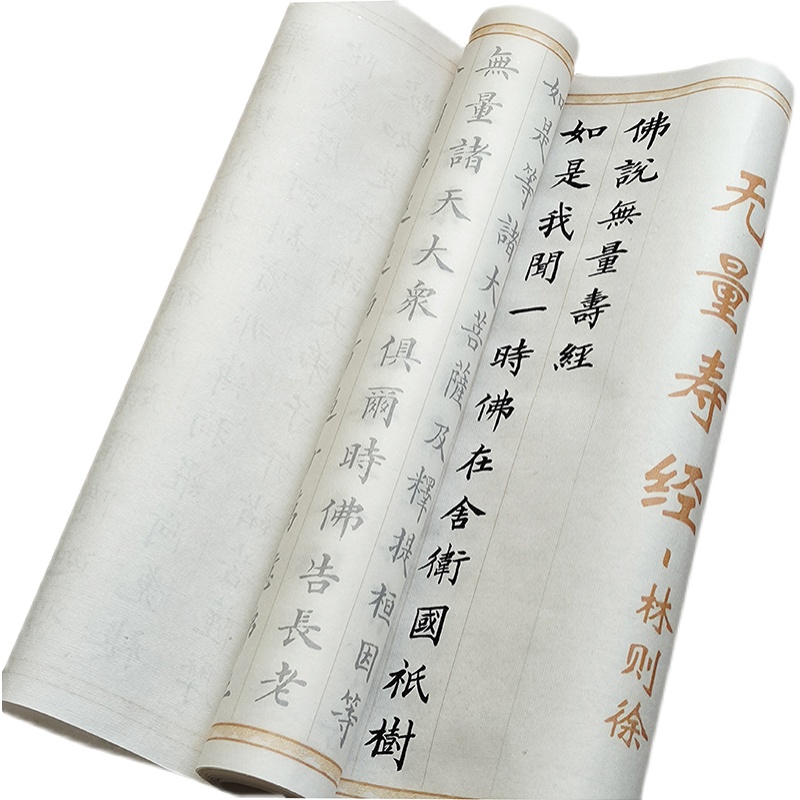 无量寿经-林则徐
佛說無量壽經
如是我聞一時佛在舍衛國祇樹
如是等諸大菩薩及釋提桓因等
無量諸天大眾俱爾時佛告長老